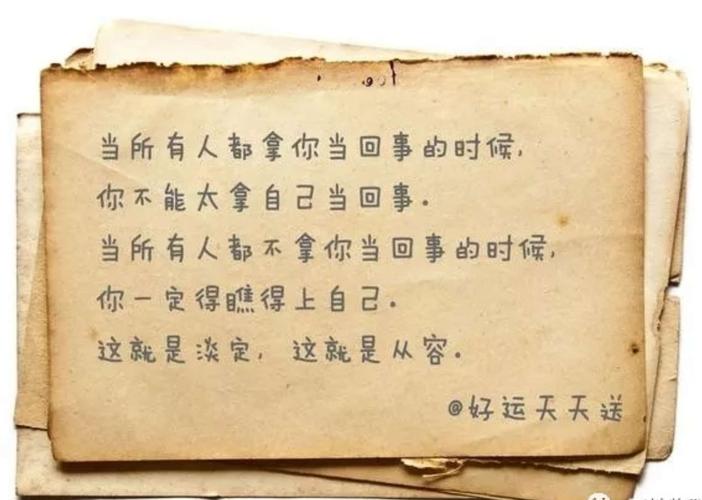 当所有人都拿你当回事的时候,
你不能太拿自己当回事。
当所有人都不拿你当回事的时候,
你一定得瞧得上自己。
这就是淡定, 这就是从容。
@好运天天送